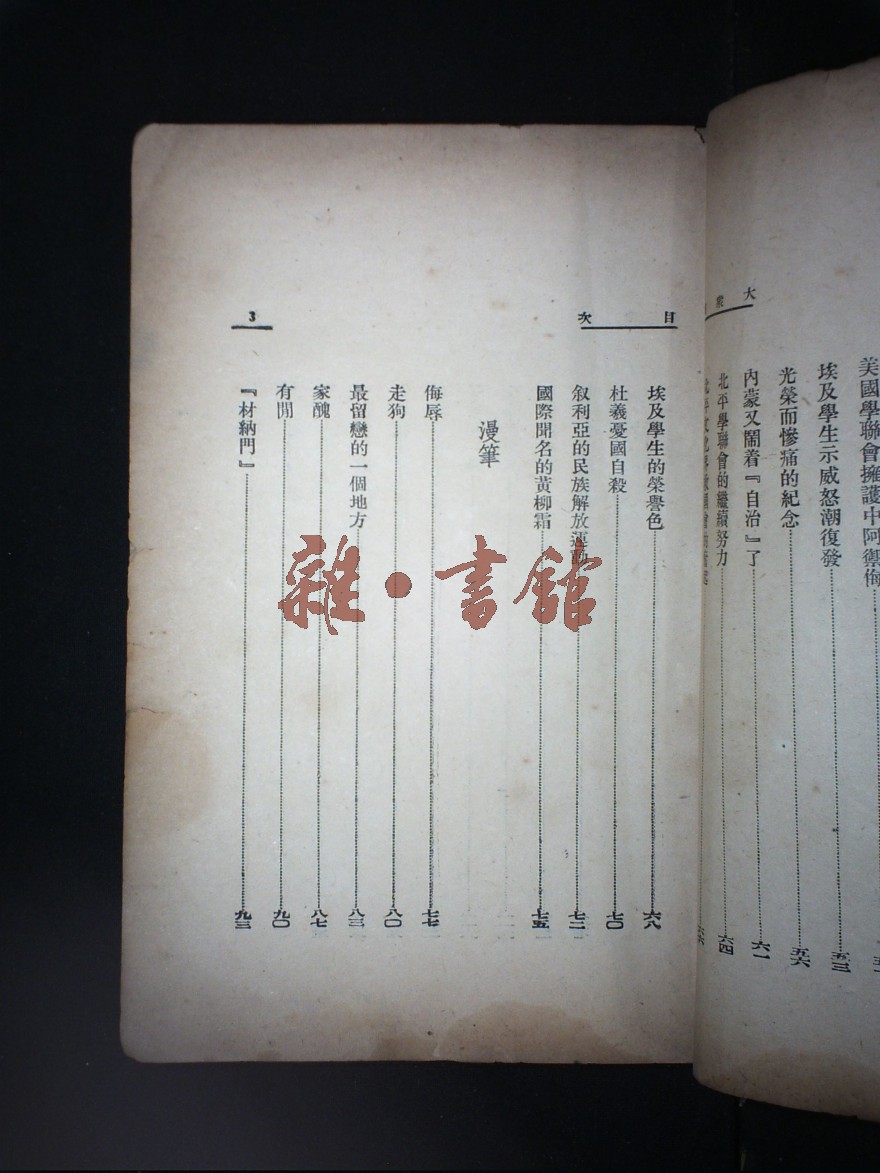 大衆
美國學聯會擁護中阿禦侮
埃及學生示威怒潮復發 五三
光榮而慘痛的紀念 五六
內蒙又鬧着『自治』了 六一
北平學聯會的繼續努力 六四
目次
埃及學生的榮譽色 六八
杜羲憂國自殺 七〇
叙利亞的民族解放運動 七二
國際聞名的黃柳霜 七五
漫筆
侮辱 七七
走狗 八〇
最留戀的一個地方 八三
家醜 八七
有閒 九〇
『材納門』 九三
3
雜·書館